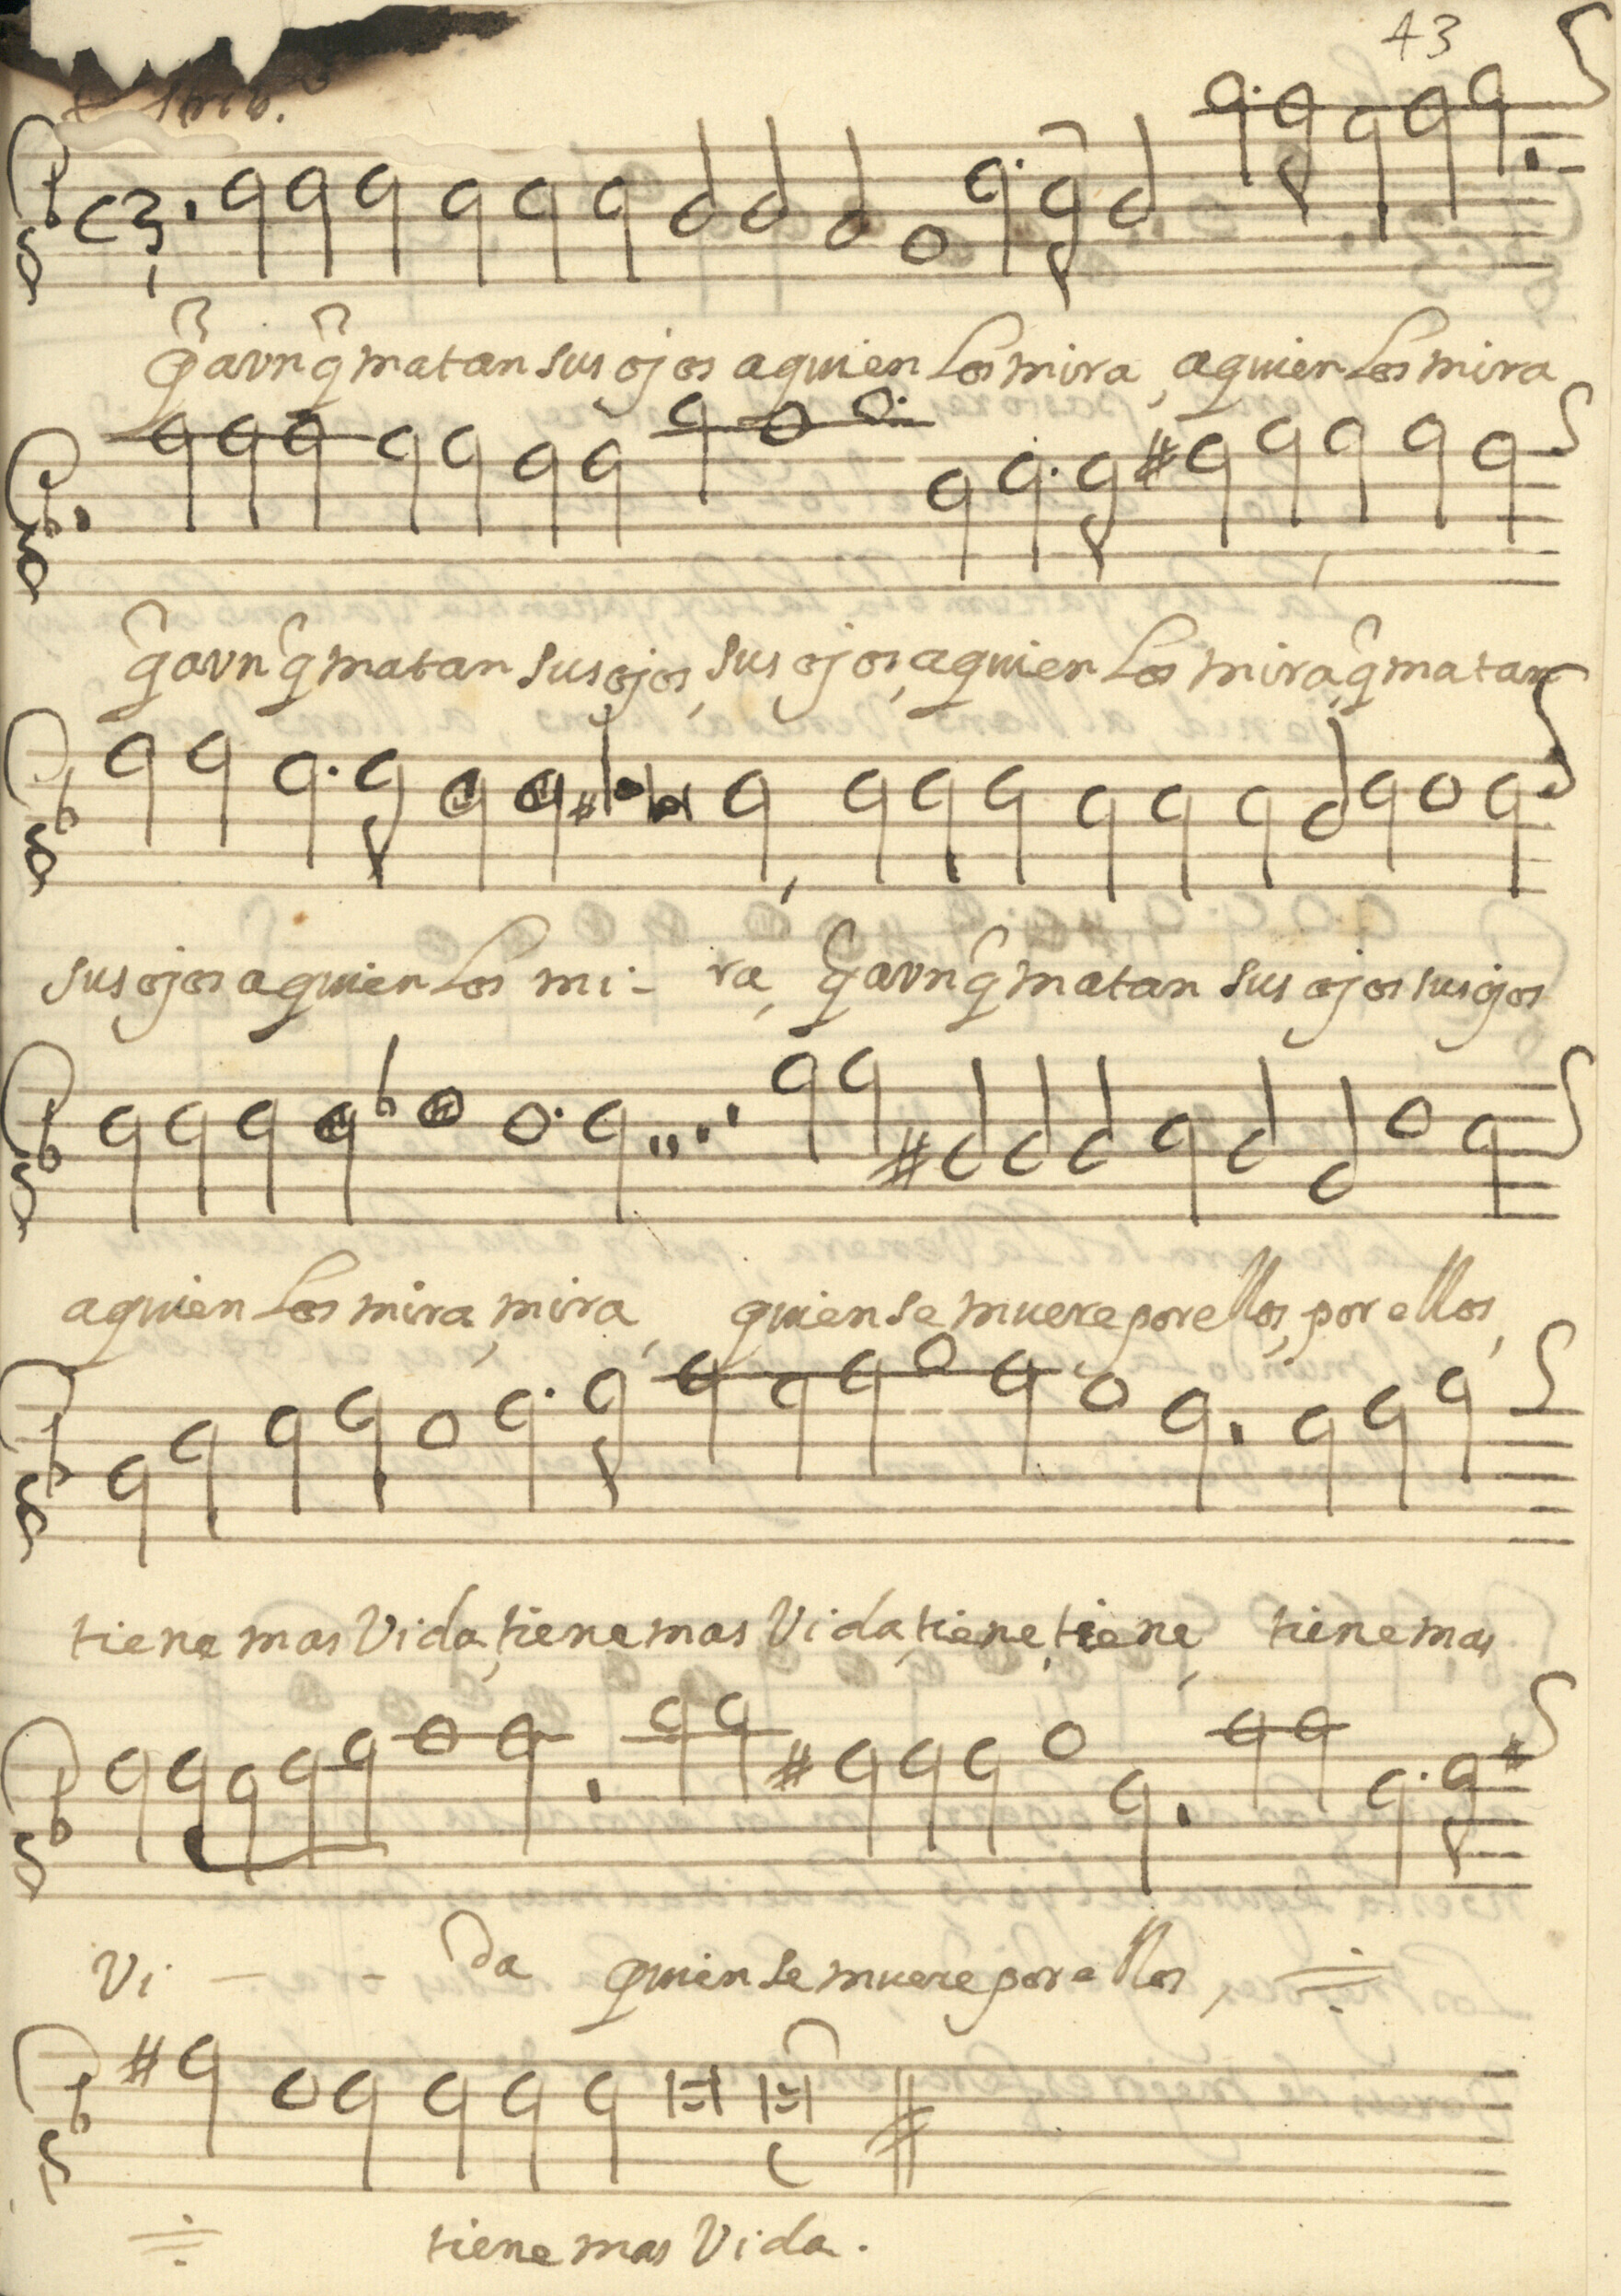 43
strib.º
q̃ aunq̃ matan sus ojos aquien los mira, aquien los mira
q̃ aunq̃ matan sus ojos, sus ojos, aquien los mira, q̃ matan
sus ojos aquien los mi - ra, q̃ aunq̃ matan sus ojos sus ojos
aquien los mira, mira, quien se muere por ellos, por ellos,
tiene mas Vida, tiene mas Vida, tiene, tiene, tiene mas
Vi - - da quien se muere por ellos,
tiene mas Vida.